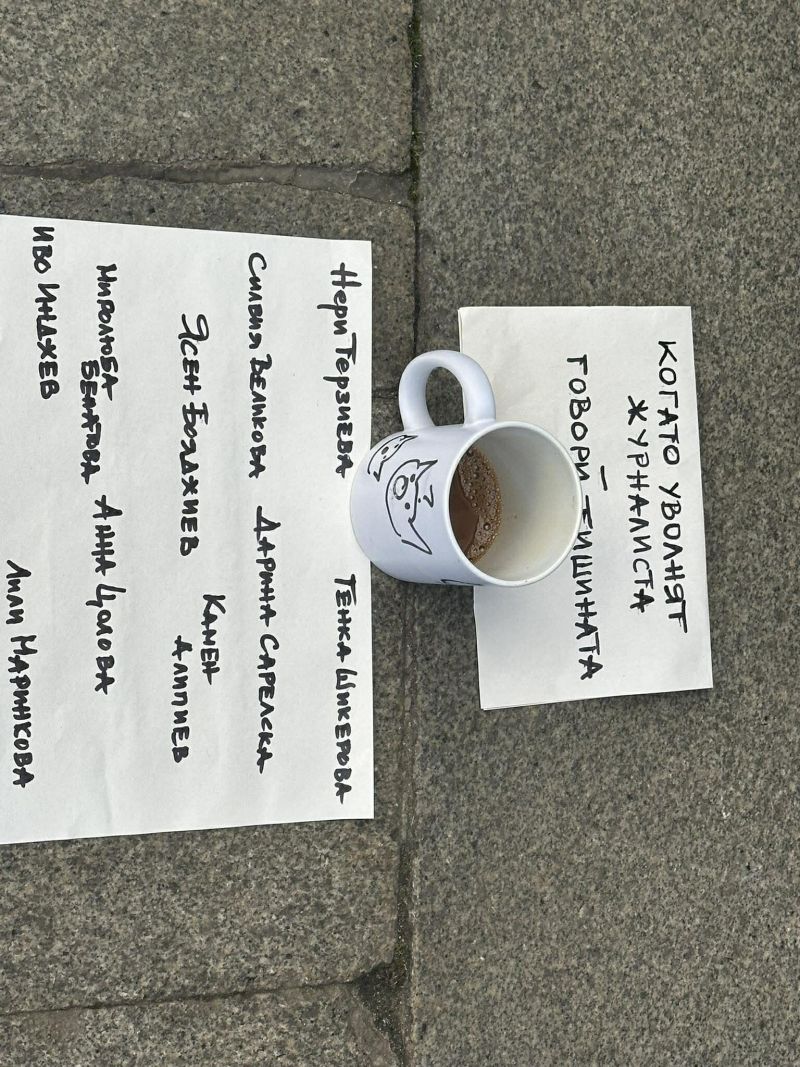 КОГАТО УВОЛНЯТ
ЖУРНАЛИСТА
ГОВОРИ ТИШИНАТА
Нери Терзиева Генка Шикерова
Силвия Великова Дарина Сарелска
Ясен Бояджиев Камен Алипиев
Миролюба Бенатова Анна Цолова
Иво Инджев Лили Маринкова